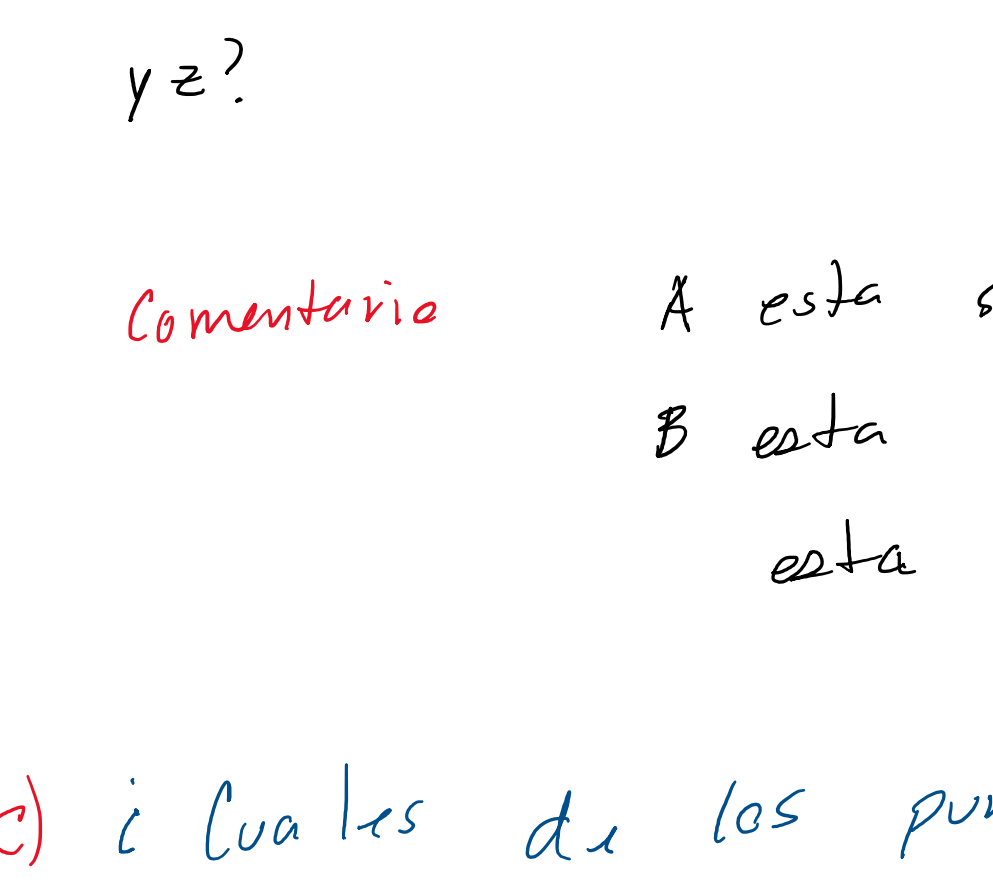 y z?
Comentario A esta s
B esta
esta
c) ¿ Cuales de los pun